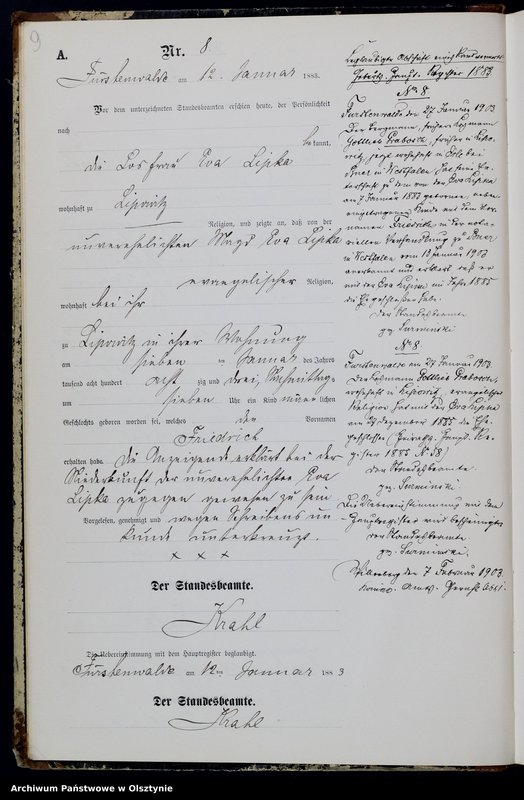 9
A.
Nr. 8.
Fürstenwalde am 12. Januar 1883.
Vor dem unterzeichneten Standesbeamten erschien heute, der Persönlichkeit
nach
bekannt,
die Losfrau Eva Lipka
wohnhaft zu Lipowitz
Religion, und zeigte an, daß von der
unverehelichten Magd Eva Lipka
evangelischer Religion,
wohnhaft bei ihr
zu Lipowitz in ihrer Wohnung
am sieben ten Januar des Jahres
tausend acht hundert acht zig und drei, Nachmittags
um sieben Uhr ein Kind männlichen
Geschlechts geboren worden sei, welches den Vornamen
Friedrich
erhalten habe. Die Anzeigende erklärt bei der
Niederkunft der unverehelichten Eva
Lipka zugegen gewesen zu sein
Vorgelesen, genehmigt und wegen Schreibens un
kunde unterkreuzt.
× × ×
Der Standesbeamte.
Krahl
Die Uebereinstimmung mit dem Hauptregister beglaubigt.
Fürstenwalde am 12ten Januar 1883
Der Standesbeamte.
Krahl
Beglaubigte Abschrift
1883
No 8.
Fürstenwalde den 27 Januar 1903
Der Bergmann, früher
Gottlieb Prabosch, früher in Lipo-
witz, jetzt wohnhaft in bei
in Westfalen hat seine Va-
terschaft zu dem von der Eva Lipka
am 7 Januar 1883 geborenen, neben
eingetragenen Kinde mit dem Vor-
namen Friedrich in der nota-
riellen Verhandlung zu
in Westfalen vom 13 Januar 1903
anerkannt und erklärt daß er
mit der Eva Lipka im Jahre 1885
die Ehe geschlossen habe.
Der Standesbeamte
gz. Surminski
No 8.
Fürstenwalde am 27 Januar 1903.
Der Losmann Gottlieb Prabosch,
wohnhaft in Lipowitz, evangelischer
Religion hat mit der Eva Lipka
am Dezember 1885 die Ehe
geschlossen Haupt. Re-
gister 1885 No 18)
Der Standesbeamte.
gz. Surminski.
Die Übereinstimmung mit dem
Hauptregister wird bescheinigt
Der Standesbeamte
gz. Surminski.
den 7 Februar 1903.
Königl. Amts. Gericht Abt 1.
Archiwum Państwowe w Olsztynie